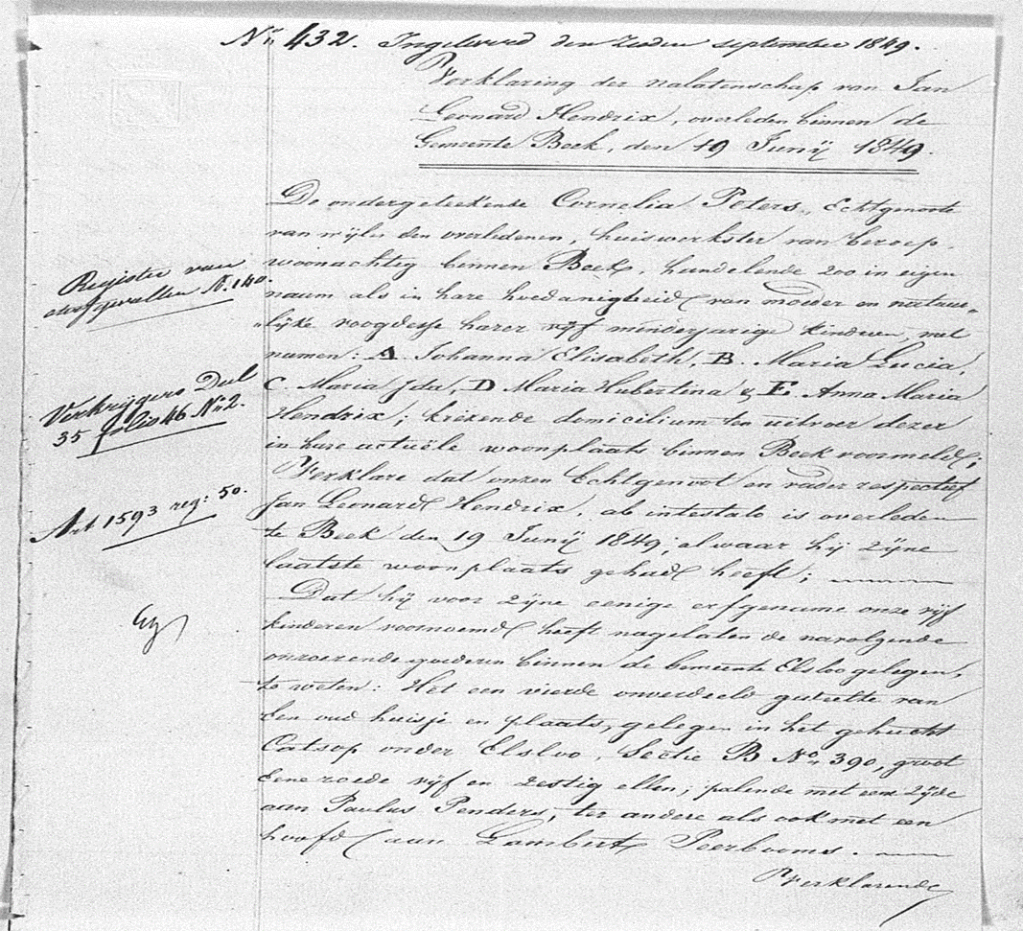 No 432. Ingeleverd den Zesden september 1849.
Verklaring der nalatenschap van Jan
Leonard Hendrix, overleden binnen de
Gemeente Beek, den 19 Junij 1849.
De ondergeteekende Cornelia Peters, Echtgenoote
van wijlen den overledenen, huiswerkster van beroep,
woonachtig binnen Beek, handelende zoo in eigen
naam als in hare hoedanigheid van moeder en natuur-
"lijke voogdesse harer vijf minderjarige kinderen, met
namen: A Johanna Elisabeth, B. Maria Lucia,
C. Maria Ida, D Maria Hubertina & E. Anna Maria
Hendrix; kiezende domicilium ten uitvoer dezer
in hare actuële woonplaats binnen Beek voormeld;
Verklare dat onzen Echtgenoot en vader respectief
Jan Leonard Hendrix, ab intestato is overleden
te Beek den 19 Junij 1849; alwaar hij zijne
laatste woonplaats gehad heeft;
Dat hij voor zijne eenige erfgename onze vijf
kinderen voornoemd heeft nagelaten de navolgende
onroerende goederen binnen de Gemeente Elsloo gelegen,
te weten: Het een vierde onverdeeld gedeelte van
Een oud huisje en plaats, gelegen in het gehucht
Catsop onder Elsloo, Sectie B No 390, groot
Eene roede vijf en zestig ellen; palende met eene zijde
aan Paulus Penders, ter andere als ook met een
hoofd aan Lambert Peerbooms.
Verklarende
Register van
sterfgevallen N. 140.
Verkrijgers Deel
35 folio 46 No 2.
Art 1593 reg: 50.